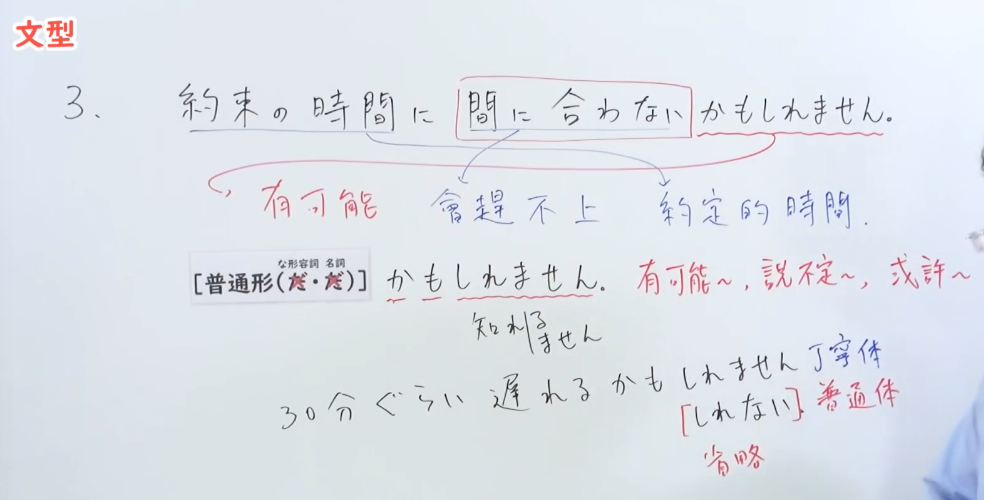 文型
3、 約束の時間に 間に合わない かもしれません。
有可能 會趕不上 約定的時間.
な形容詞 名詞
[普通形(だ・だ)] かもしれません。 有可能～, 說不定～, 或許～
知れ る
ません
30分ぐらい遅れるかもしれません 丁寧体
[しれない]. 普通体
省略